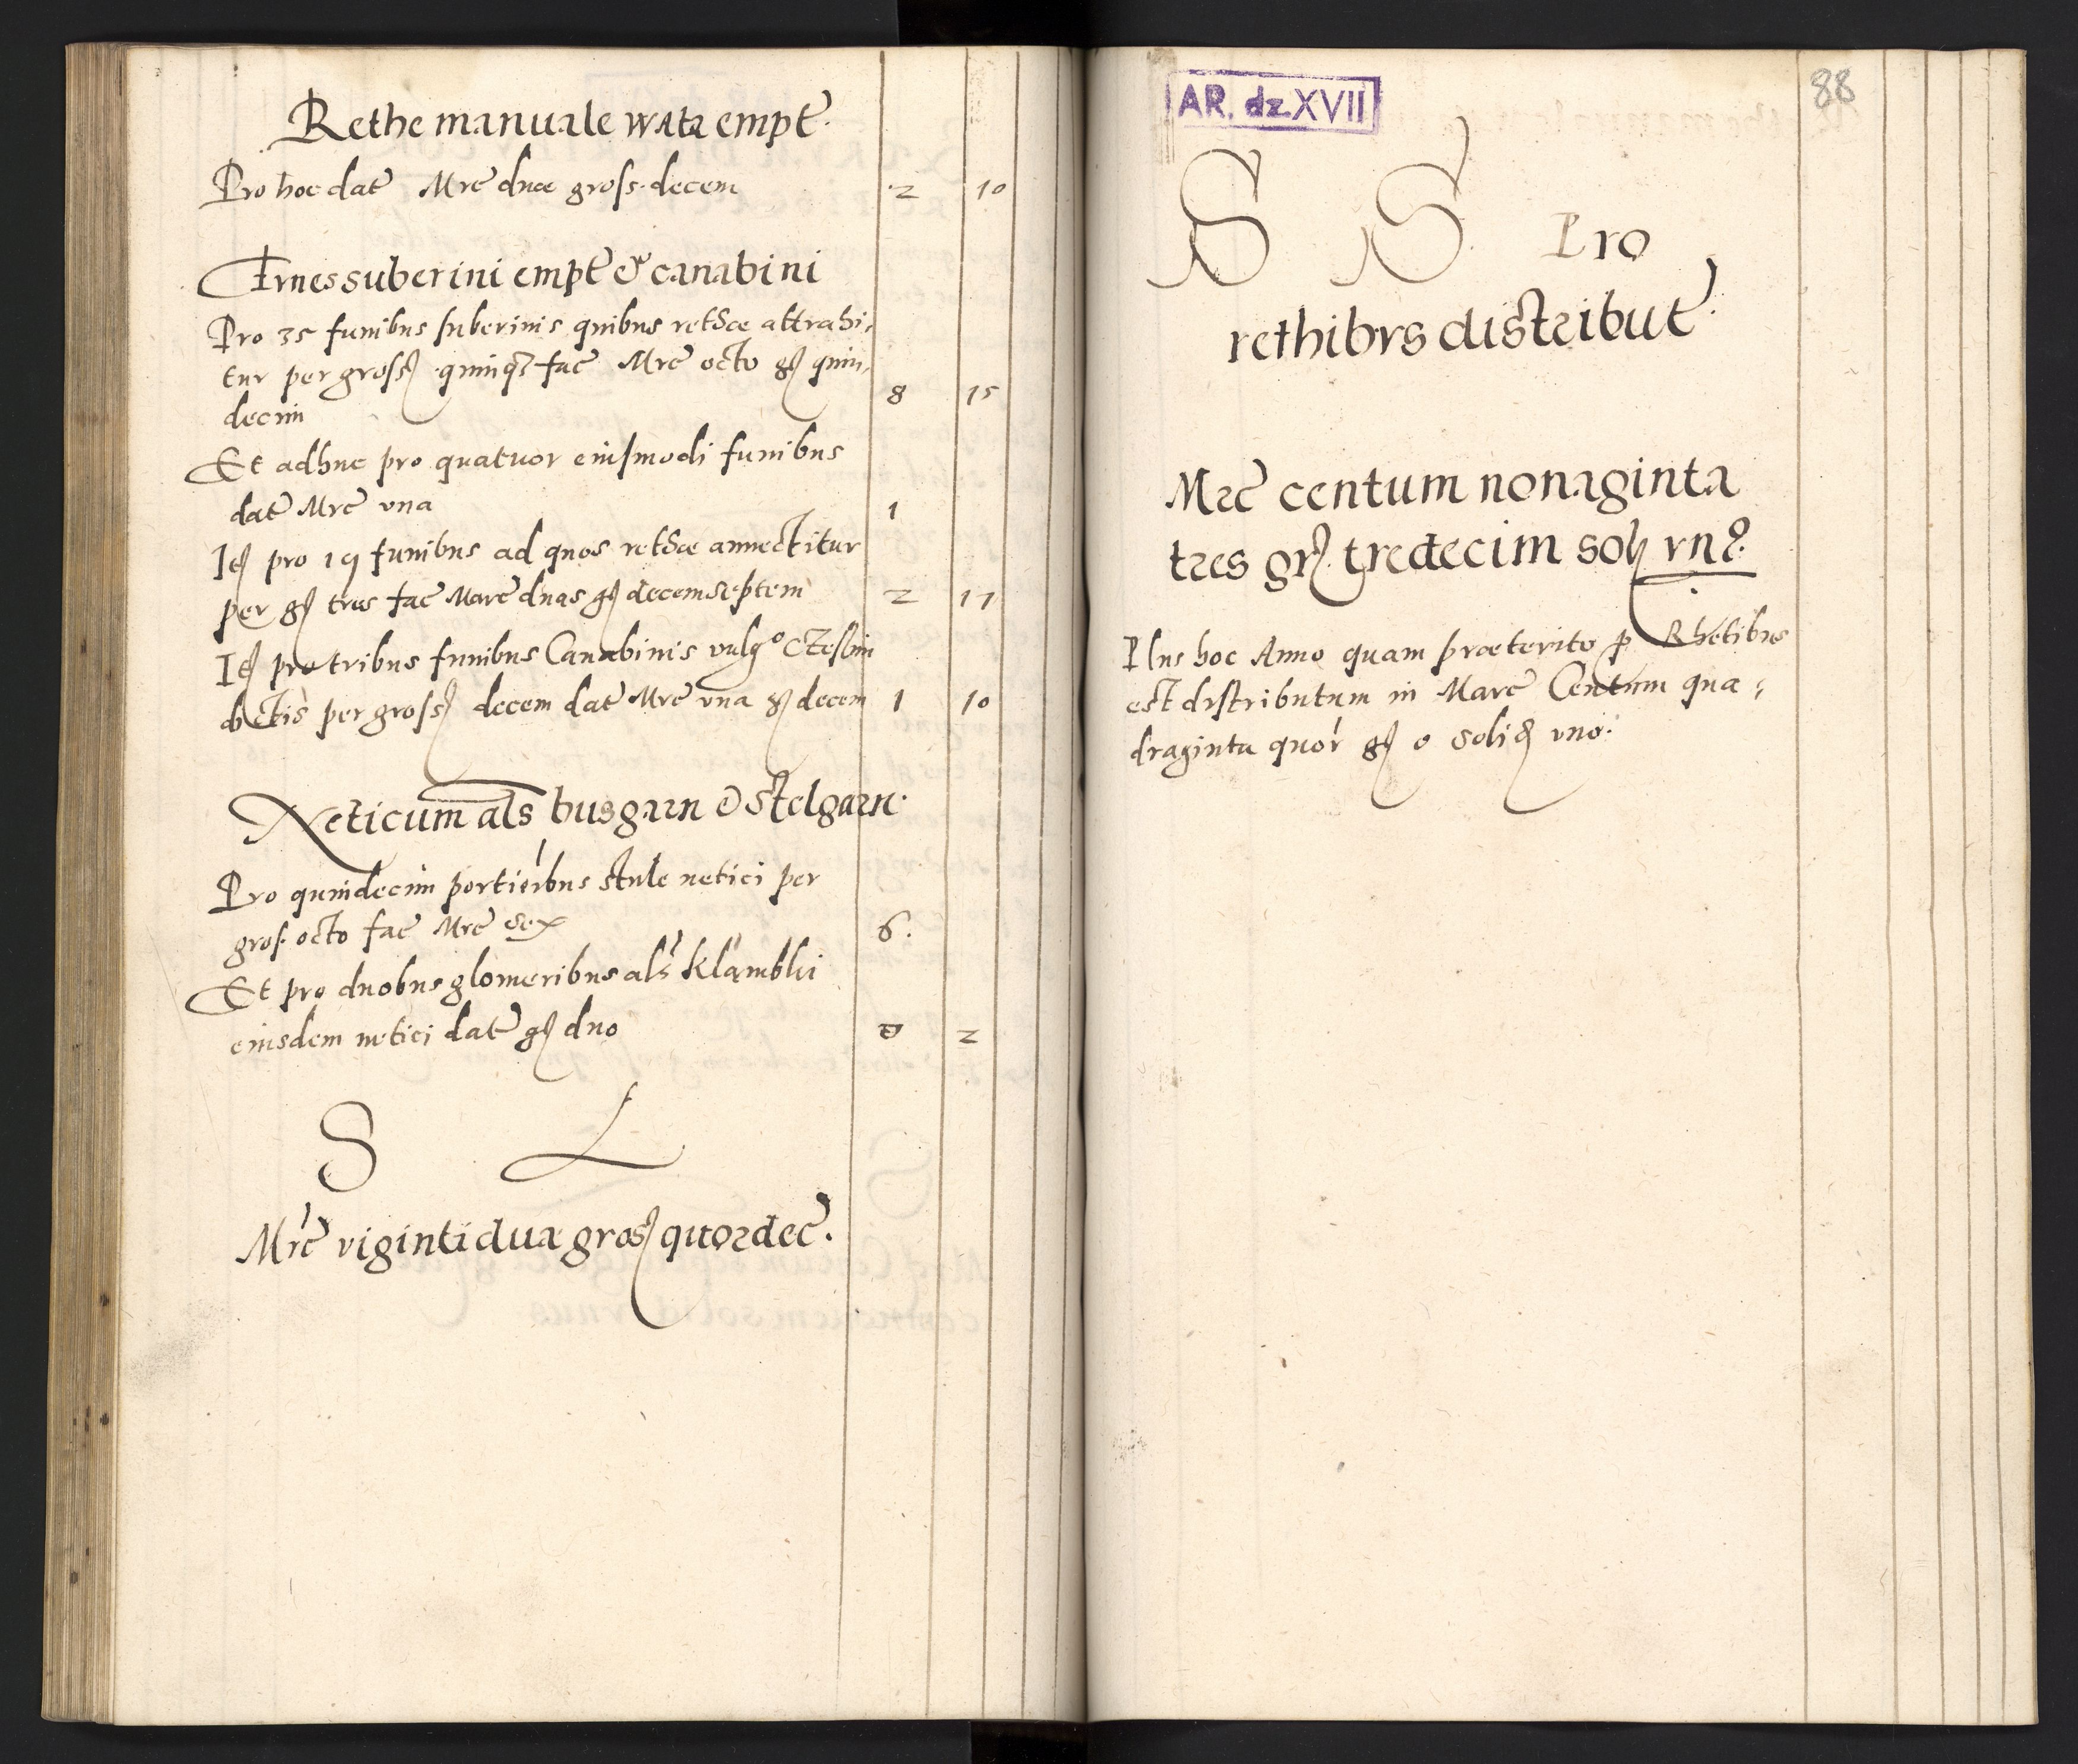 Rethe manuale wata empt.
Pro hoc dat Mrc duae gross. decem 2 10
Funes suberini empt & canabini
Pro 35 funibus suberinis quibus rethae attrahi-
tur per gross quinq fac Mrc octo gs quin-
decim 8 15
Et adhuc pro quatuor eiusmodi funibus
dat Mrc vna 1
It pro 19 funibus ad quos rethae annectitur
per gs tres fac Marc duas gs decemseptem 2 17
It pro tribus funibus Canabinis vulgo
per gross decem dat Mrc vna gs decem 1 10
Neticum als busgarn & stelgarn.
Pro quindecim portioibus stule netici per
gros. octo fac Mrc sex 6.
Et pro duobus glomeribus als Klambki
eiusdem netici dat gs duo 0 2
S L
Mrc viginti dua gross quordec.
AR. dz. XVII
88
S S Pro
rethibvs distribut.
Mrc centum nonaginta
tres gr. tredecim sol vn9.
Plus hoc Anno quam praeterito p Rhetibus
est distributum in Marc Centum qua-
draginta quor gs 0 solid vno.